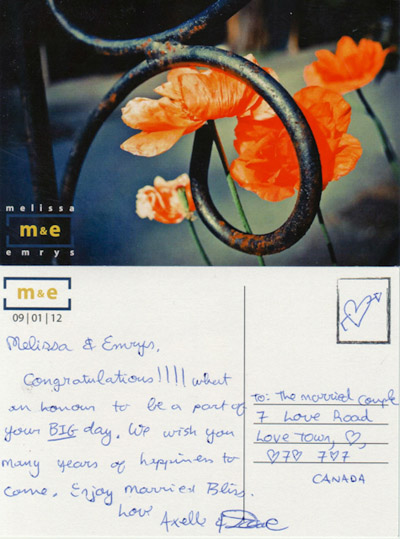 melissa
m&e
emrys
m&e
09|01|12
Melissa & Emrys,
Congratulations!!!! what
an honour to be a part of
your BIG day. We wish you
many years of happiness to
come. Enjoy Married Bliss.
Love
Axelle &
To: The married couple
7 Love Road
Love Town, ♡,
♡7♡ 7♡7
CANADA